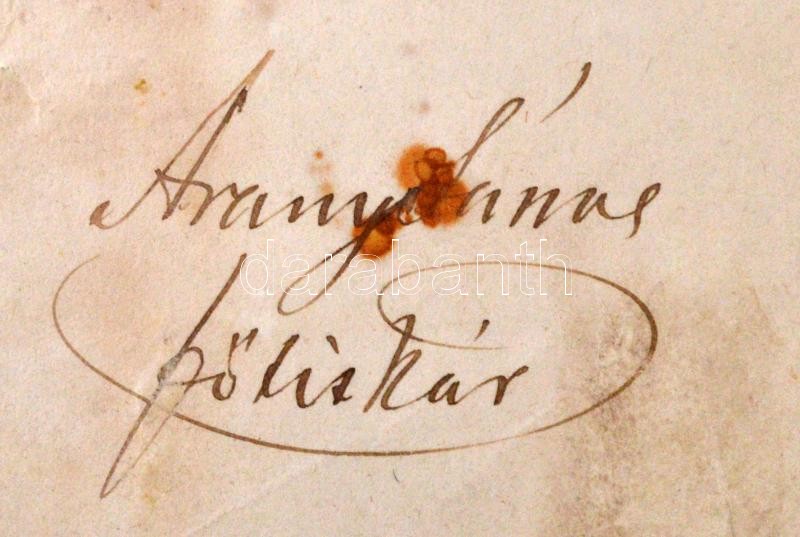 Arany János
darabanth
főtitkár